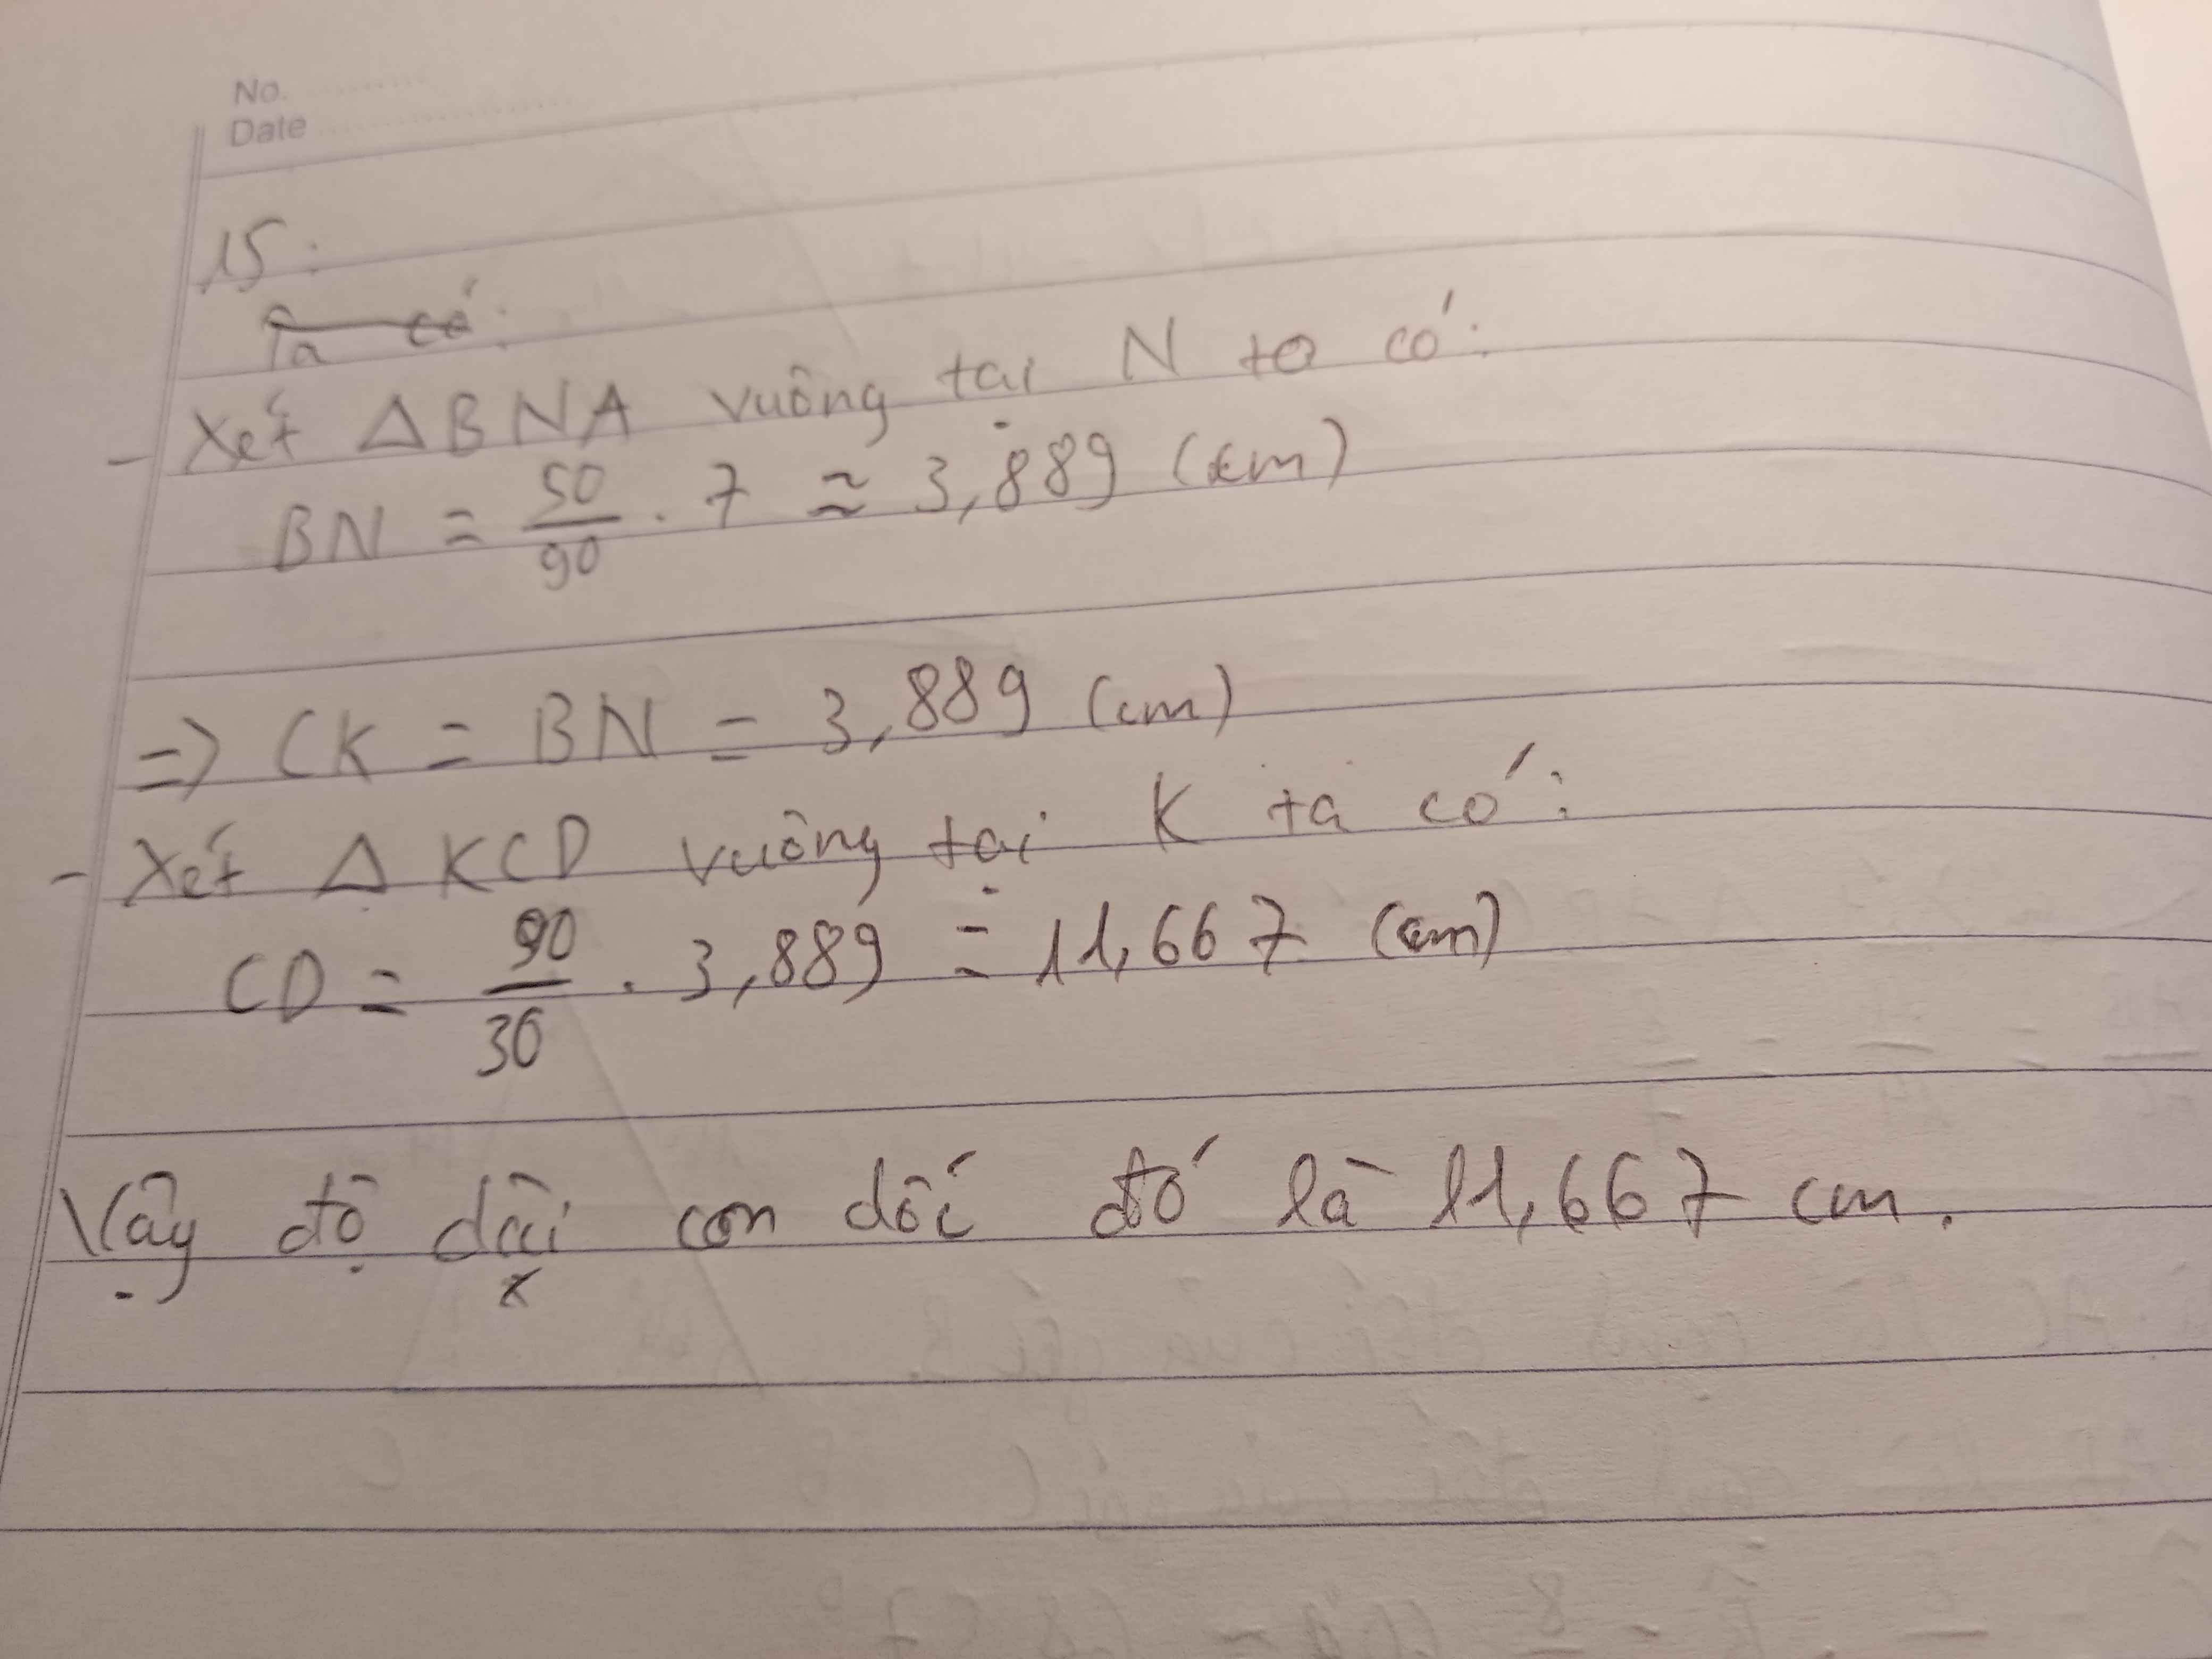 No.
Date
15:
Ta có:
- Xét ΔBNA vuông tại N ta có:
BN = 50/90 . 7 ≈ 3,889 (cm)
=> CK = BN = 3,889 (cm)
- Xét Δ KCD vuông tại K ta có:
CD = 90/30 . 3,889 = 11,667 (cm)
Vậy độ dài con dốc đó là 11,667 cm.